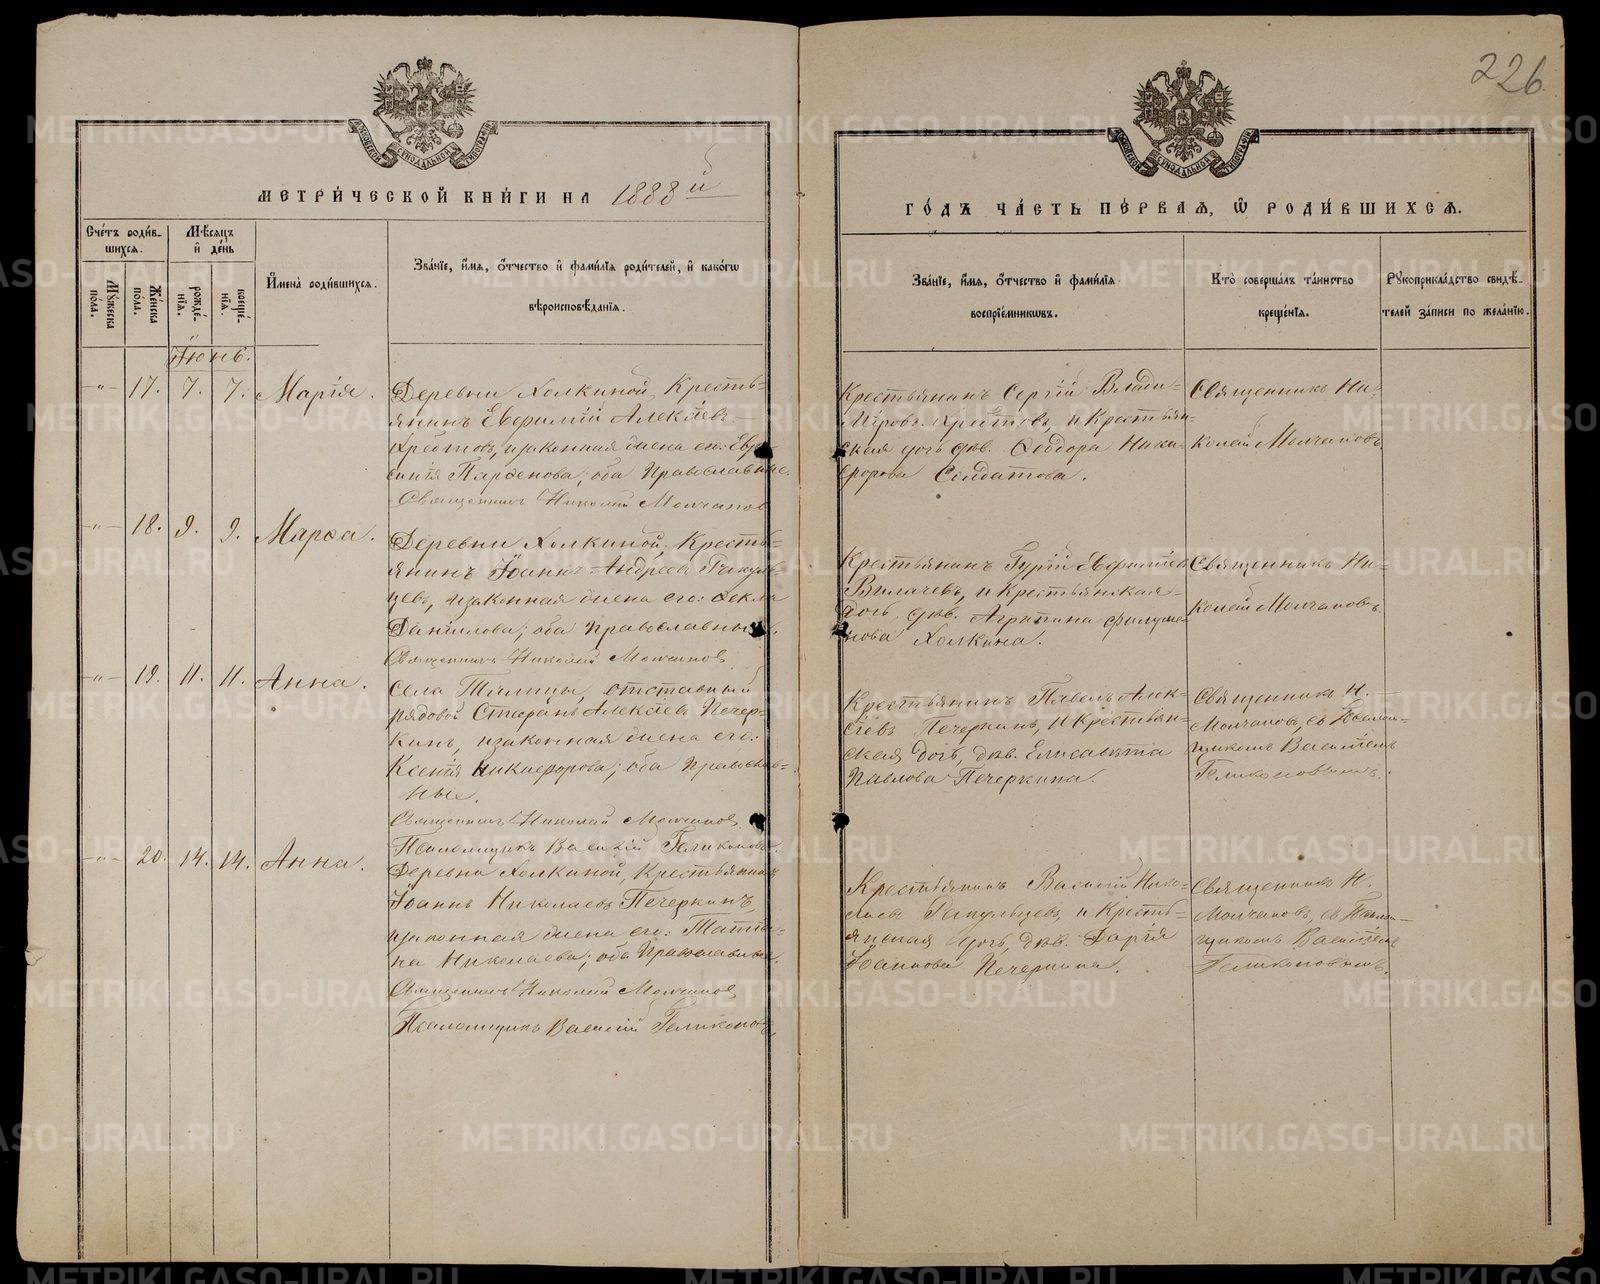 226
МЕТРИ́ЧЕСКОЙ КНИ́ГИ НА 1888й
ГО́ДЪ ЧА́СТЬ ПЕ́РВАЯ, Ѡ РОДИ́ВШИХСЯ.
Сче́тъ роди́в-
шихся.
Мꙋжеска пола.
Же́нска по́ла.
Мѣсяцъ и де́нь
рожде́-
нїя.
креще́-
нїя.
И́мена̀ роди́вшихся.
Зва́нїе, и́мя, о́тчество и фами́лїя роди́телей, и како́гѡ
вѣроисповѣ́данїя.
Зва́нїе, и́мя, о́тчество и фами́лїя
воспрїе́мникѡвъ.
Кто̀ соверша́лъ та́инство
креще́нїя.
Рꙋкоприкла́дство свидѣ́-
телей за́писи по жела́нїю.
Іюнь.
-"- 17. 7. 7. Марія.
Деревни Холкиной, Кресть-
янинъ Евфимій Алексѣевъ
Хрѣптовъ, и законная жена его: Евфро-
синія Парѳенова; оба Православные.
Священникъ Николай Молчановъ
Крестьянинъ Сергій Влади-
міровъ Хрѣптовъ, и Крестьян-
ская дочь дѣв. Ѳеодора Ники-
форова Солдатова.
Священникъ Ни-
колай Молчановъ.
-"- 18. 9. 9. Марѳа.
Деревни Холкиной, Кресть-
янинъ Іоаннъ Андреевъ Ракуль-
цевъ, и законная жена его: Ѳекла
Даніилова; оба Православные.
Священникъ Николай Молчановъ
Крестьянинъ Гурій Евфиміев
Вилачевъ, и Крестьянская
дочь, дѣв. Агрипина Филимо-
нова Холкина.
Священникъ Ни-
колай Молчановъ.
-"- 19. 11. 11. Анна.
Села Талицы, отставный
рядовой Стефанъ Алексѣевъ Печер-
кинъ, и законная жена его:
Ксенія Никифорова; оба Православ-
ные.
Священникъ Николай Молчановъ
Псаломщикъ Василій Геликоновъ
Крестьянинъ Павелъ Алек-
сѣевъ Печеркинъ, и Крестьян-
ская дочь, дѣв. Елисавета
Павлова Печеркина.
Священникъ Н.
Молчановъ, съ Псалом-
щикомъ Василіемъ
Геликоновымъ.
-"- 20. 14. 14. Анна.
Деревни Холкиной, Крестьянинъ
Іоаннъ Николаевъ Печеркинъ,
и законная жена его: Татья-
на Николаева; оба Православные.
Священникъ Николай Молчановъ
Псаломщикъ Василій Геликоновъ
Крестьянинъ Василій Нико-
лаевъ Ракульцевъ, и Кресть-
янская дочь, дѣв. Дарія
Іоаннова Печеркина.
Священникъ Н.
Молчановъ, съ Псалом-
щикомъ Василіемъ
Геликоновымъ.
METRIKI.GASO-URAL.RU